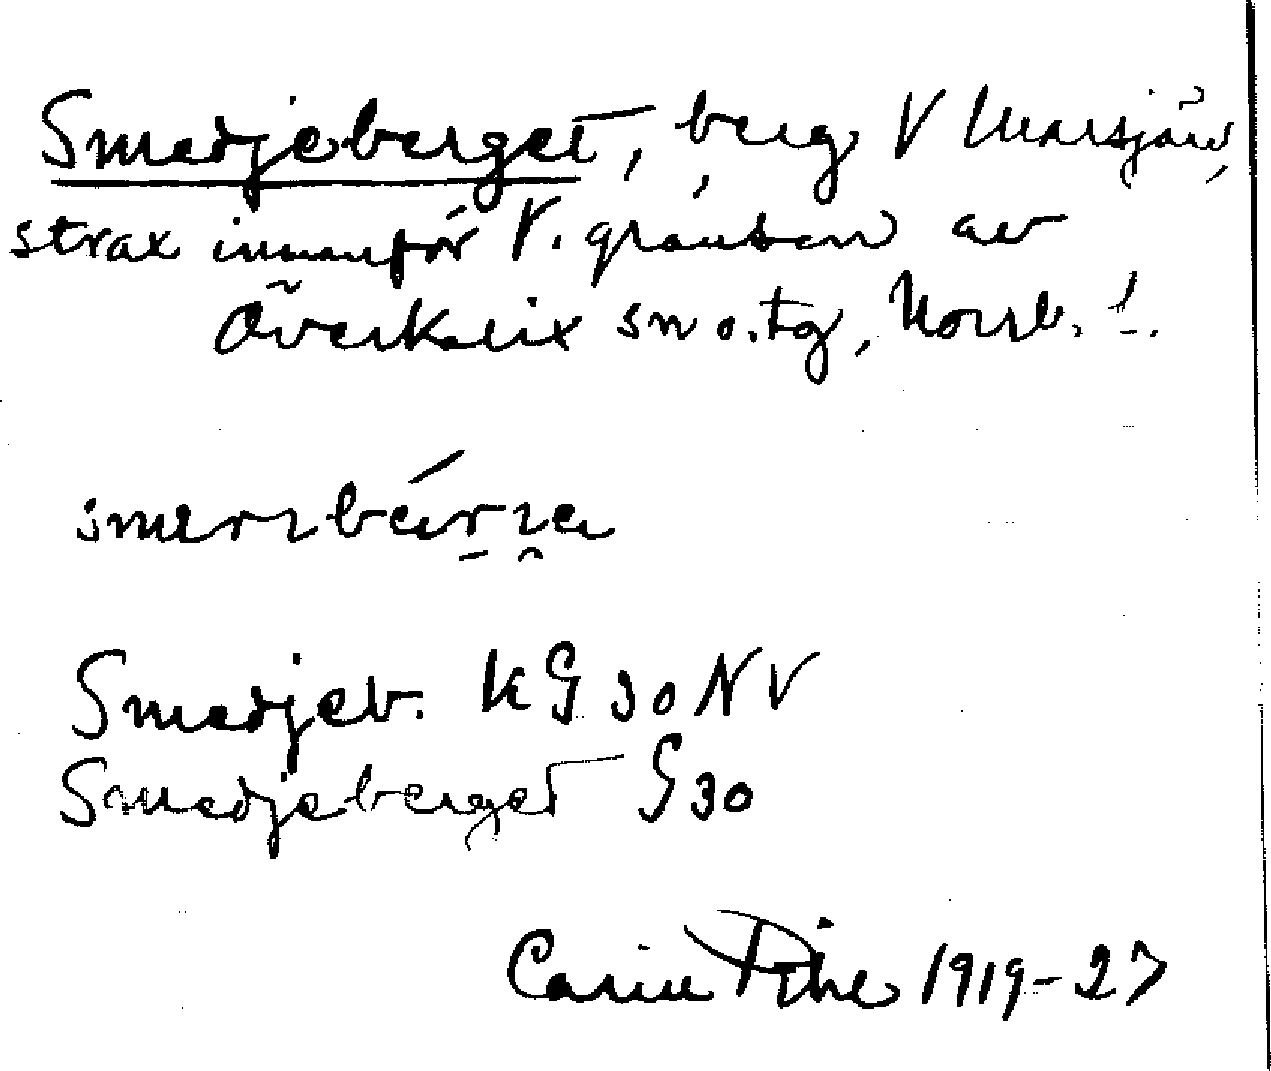 Smedjeberget, berg V Marsjärv,
strax innanför V. gränsen av
Överkalix sn o. tg, Norrb. !.
Smedjeb. KG 30 NV
Smedjeberget G 30
Carin Pihl 1919-27